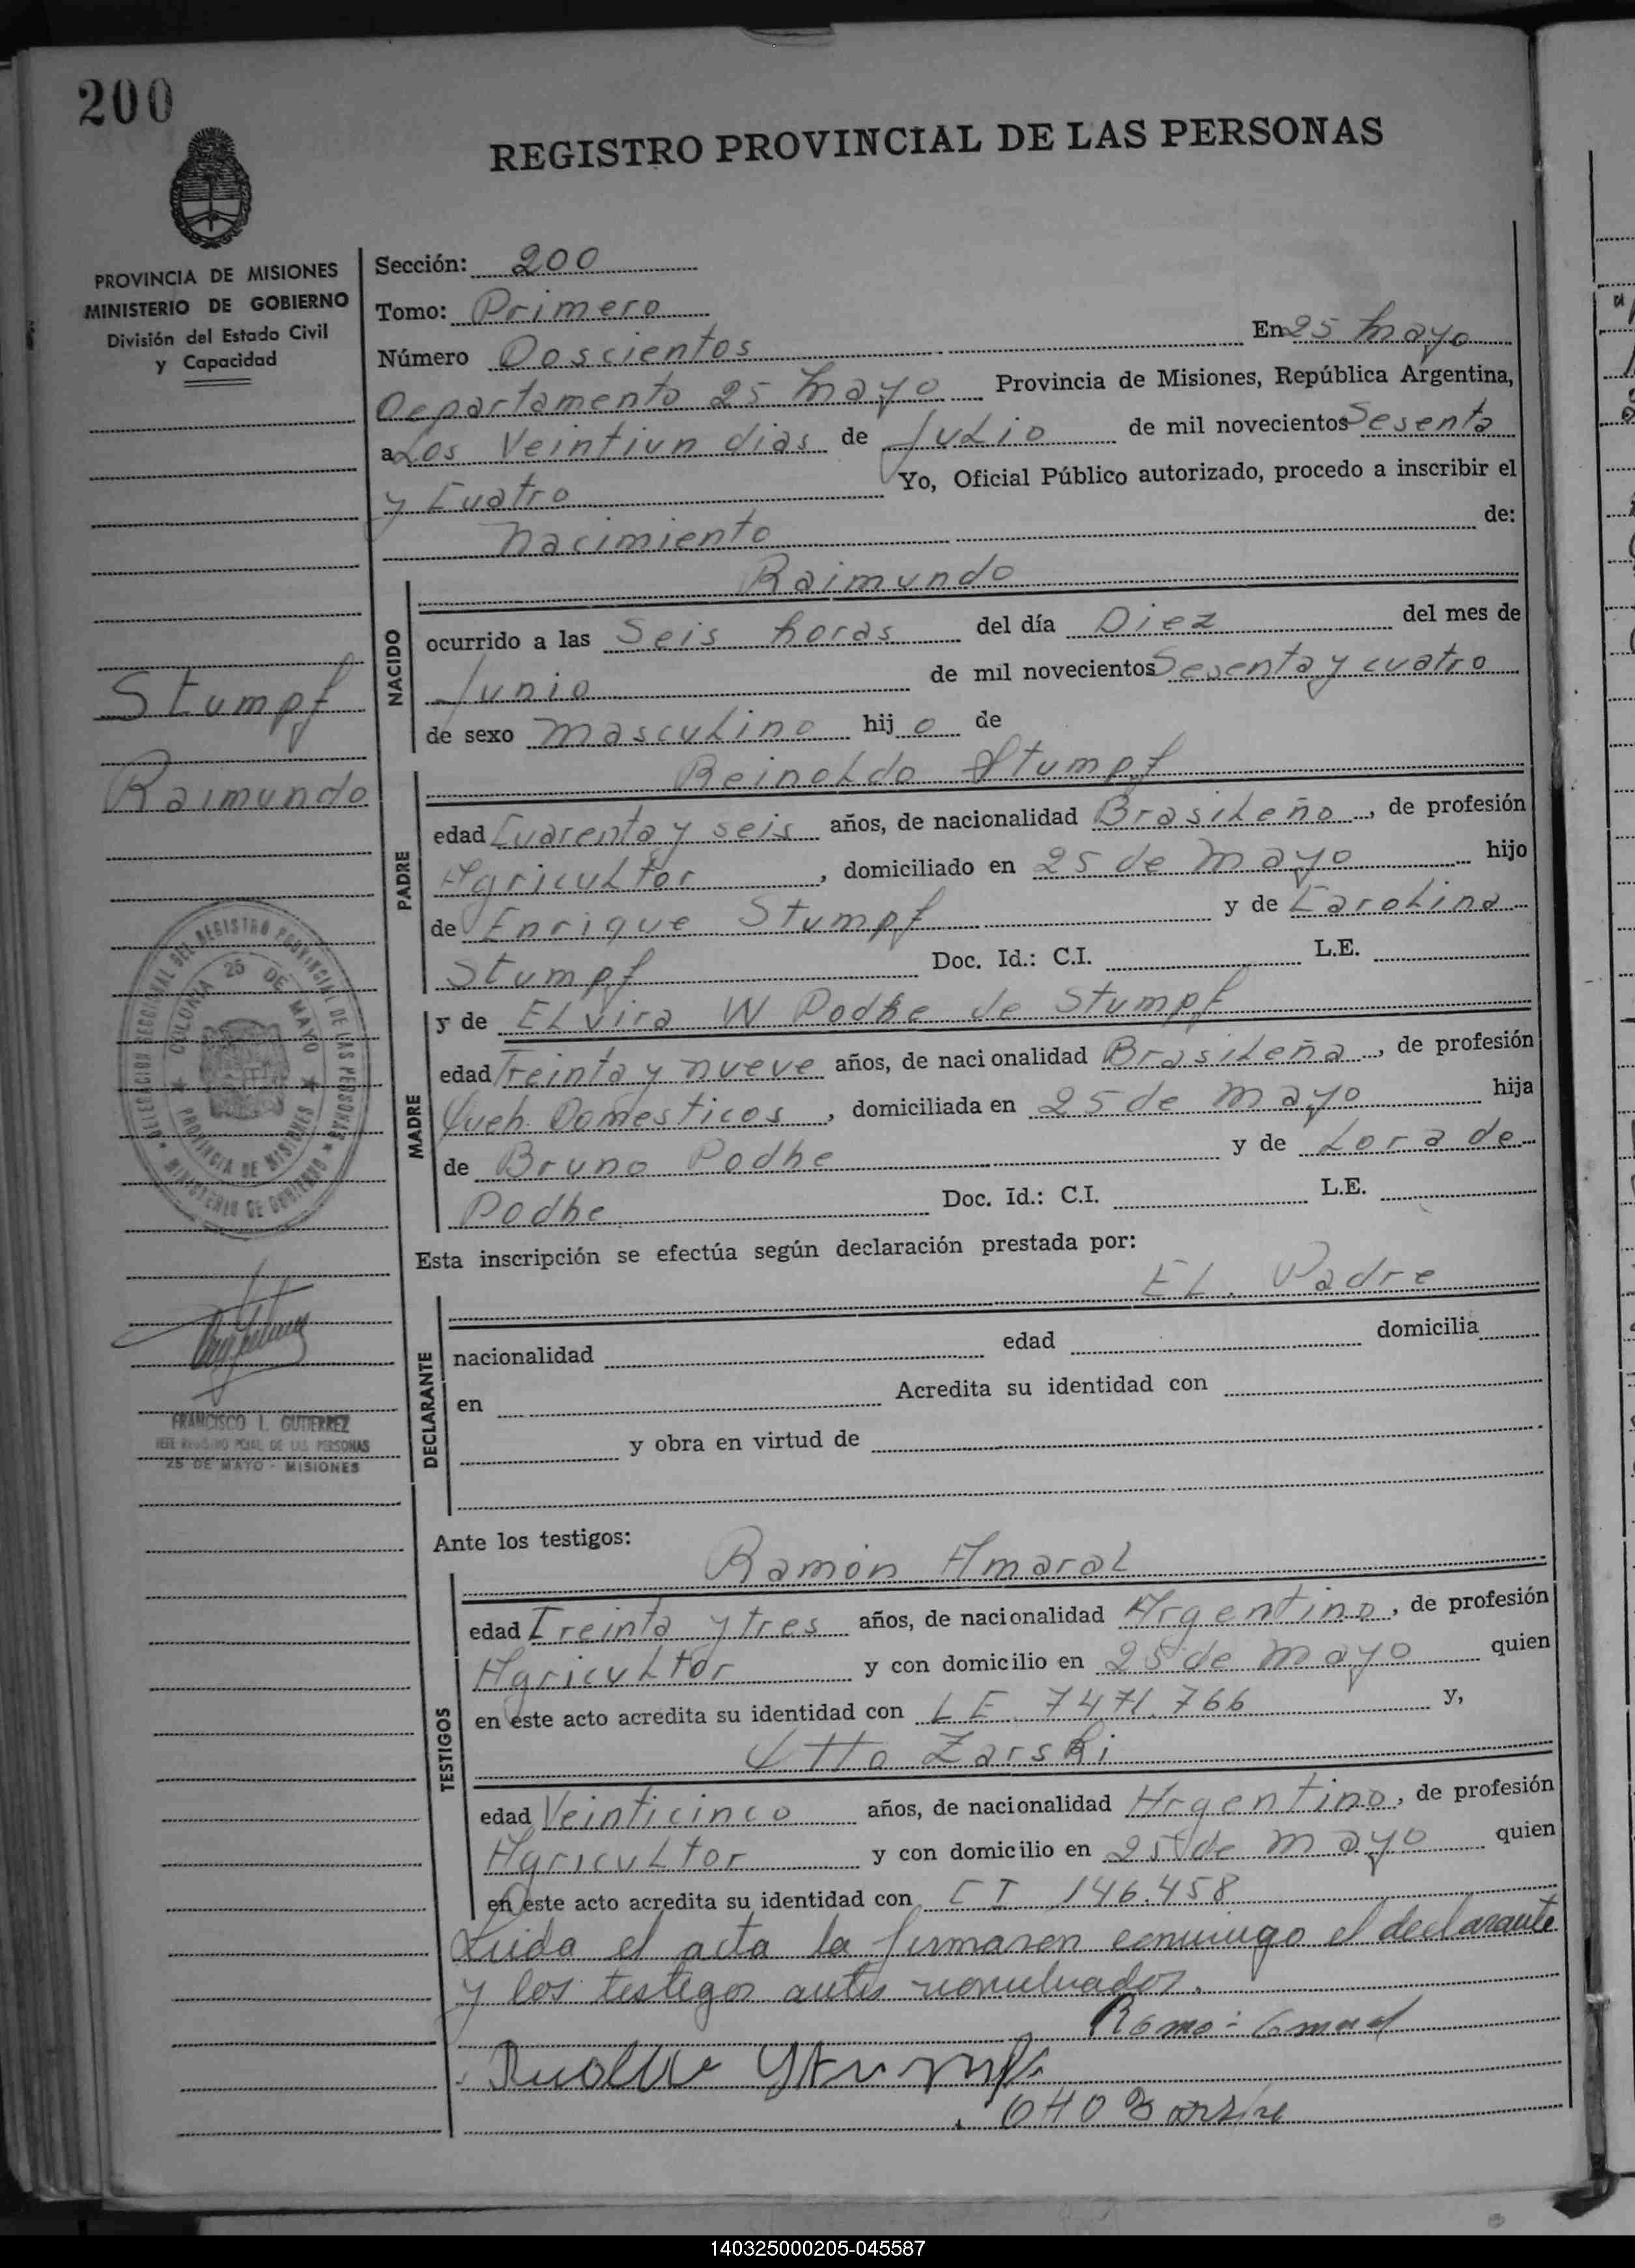 200
REGISTRO PROVINCIAL DE LAS PERSONAS
PROVINCIA DE MISIONES
MINISTERIO DE GOBIERNO
División del Estado Civil
y Capacidad
Sección: 200
Tomo: Primero
Número Doscientos En 25 Mayo
Departamento 25 Mayo Provincia de Misiones, República Argentina,
a Los Veintiun dias de Julio de mil novecientos Sesenta
y Cuatro Yo, Oficial Público autorizado, procedo a inscribir el
Nacimiento de:
Raimundo
NACIDO
ocurrido a las Seis horas del día Diez del mes de
Junio de mil novecientos Sesenta y cuatro
de sexo Masculino hij o de
Stumpf
Raimundo
Reinoldo Stumpf
PADRE
edad Cuarenta y seis años, de nacionalidad Brasileño, de profesión
Agricultor, domiciliado en 25 de Mayo hijo
de Enrique Stumpf y de Carolina
Stumpf Doc. Id.: C.I. L.E.
y de Elvira W Podhe de Stumpf
MADRE
edad Treinta y nueve años, de nacionalidad Brasileña, de profesión
Queh. Domesticos, domiciliada en 25 de Mayo hija
de Bruno Podhe y de Lora de
Podhe Doc. Id.: C.I. L.E.
DELEGACION SECCIONAL DEL REGISTRO PROVINCIAL DE LAS PERSONAS
COLONIA 25 DE MAYO
PROVINCIA DE MISIONES
MINISTERIO DE GOBIERNO
Esta inscripción se efectúa según declaración prestada por:
El. Padre
DECLARANTE
nacionalidad edad domicilia
en Acredita su identidad con
y obra en virtud de
FRANCISCO I. GUTIERREZ
JEFE REGISTRO PCIAL. DE LAS PERSONAS
25 DE MAYO - MISIONES
Ante los testigos:
Ramón Amaral
TESTIGOS
edad Treinta y tres años, de nacionalidad Argentino, de profesión
Agricultor y con domicilio en 25 de Mayo quien
en este acto acredita su identidad con LE. 7471.766 y,
Otto Zarski
edad Veinticinco años, de nacionalidad Argentino, de profesión
Agricultor y con domicilio en 25 de Mayo quien
en este acto acredita su identidad con CI 146.458
Leida el acta la firmaron conmigo el declarante
y los testigos antes nombrados.
140325000205-045587